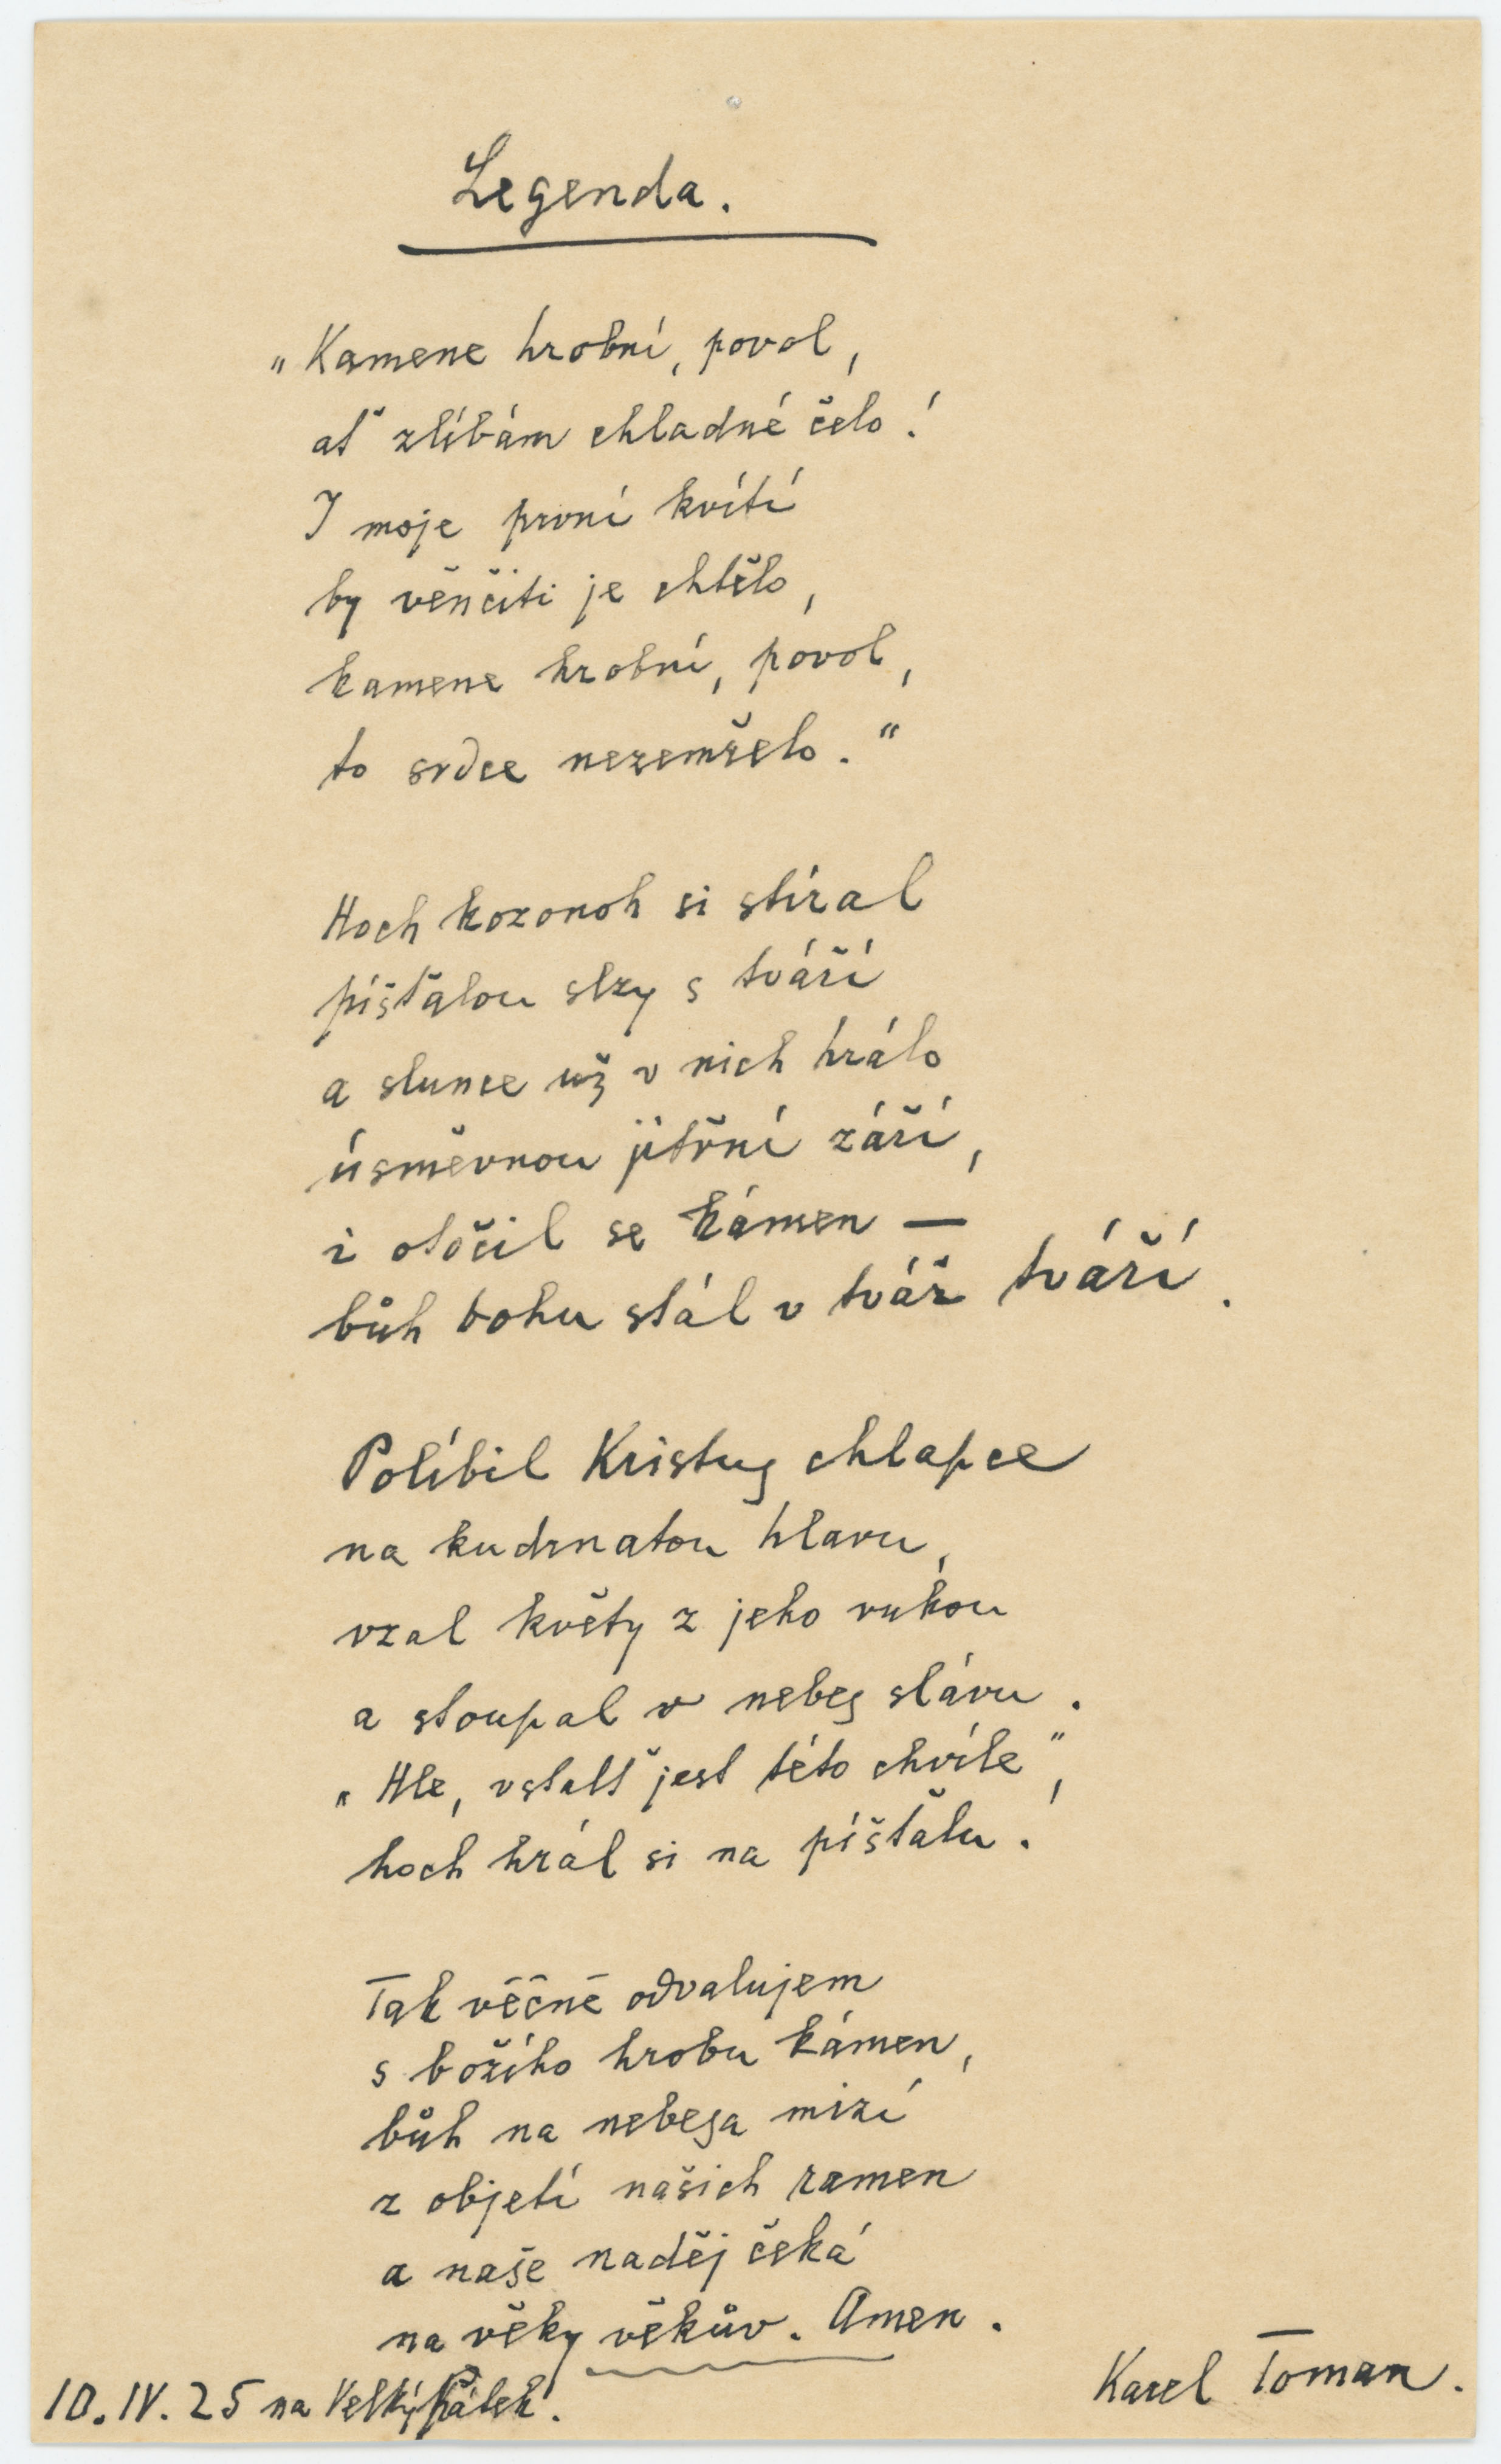 Legenda.
„Kamene hrobní, povol,
ať zlíbám chladné čelo!
I moje první kvítí
by věnčiti je chtělo,
kamene hrobní, povol,
to srdce nezemřelo."
Hoch kozonoh si stíral
píšťalou slzy s tváří
a slunce už v nich hrálo
úsměvnou jitřní září,
i otočil se kámen —
bůh bohu stál v tvář tváří.
Políbil Kristus chlapce
na kudrnatou hlavu,
vzal květy z jeho rukou
a stoupal v nebes slávu.
„Hle, vstalť jest této chvíle",
hoch hrál si na píšťalu.
Tak věčně odvalujem
s božího hrobu kámen,
bůh na nebesa mizí
z objetí našich ramen
a naše naděj čeká
na věky věkův. Amen.
10. IV. 25 na Velký Pátek.
Karel Toman.